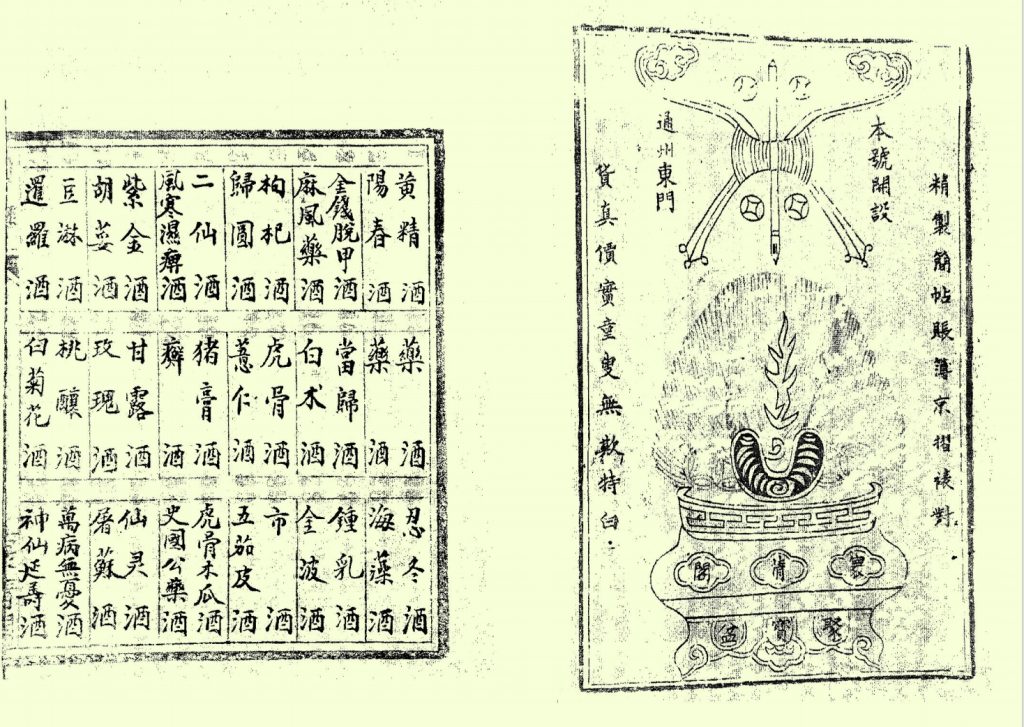 精製簡帖賬簿京摺裱對
本號開設
通州東門
貨真價實童叟無欺特白
清閣
聚寶盆
黃精酒
陽春酒
金錢脫甲酒
麻風藥酒
枸杞酒
歸圓酒
二仙酒
風寒濕痹酒
紫金酒
胡荽酒
豆淋酒
暹羅酒
藥酒
藥酒
當歸酒
白术酒
虎骨酒
薏仁酒
猪膏酒
癬酒
甘露酒
玫瑰酒
桃釀酒
白菊花酒
忍冬酒
海藻酒
鍾乳酒
金波酒
市酒
五茄皮酒
虎骨木瓜酒
史國公藥酒
仙灵酒
屠蘇酒
萬病無憂酒
神仙延壽酒